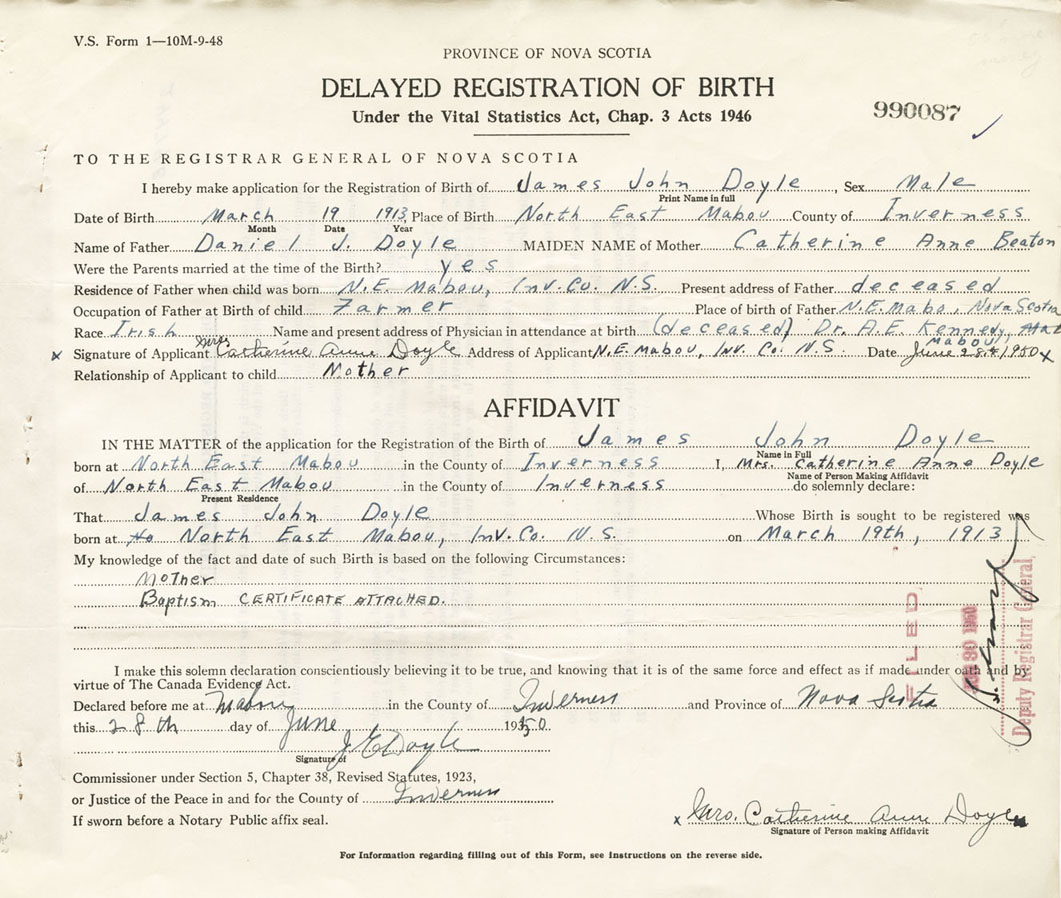 V.S. Form 1—10M-9-48
PROVINCE OF NOVA SCOTIA
DELAYED REGISTRATION OF BIRTH
Under the Vital Statistics Act, Chap. 3 Acts 1946
990087
TO THE REGISTRAR GENERAL OF NOVA SCOTIA
I hereby make application for the Registration of Birth of James John Doyle, Sex Male
Print Name in full
Date of Birth March 19 1913, Place of Birth North East Mabou County of Inverness
Month Date Year
Name of Father Daniel J. Doyle MAIDEN NAME of Mother Catherine Anne Beaton
Were the Parents married at the time of the Birth? yes
Residence of Father when child was born N.E. Mabou, Inv. Co. N.S. Present address of Father deceased
Occupation of Father at Birth of child Farmer Place of birth of Father N.E. Mabo, Nova Scotia
Race Irish Name and present address of Physician in attendance at birth (deceased) Dr. A.E. Kennedy,
Mabou
x Signature of Applicant Mrs Catherine Anne Doyle Address of Applicant N.E. Mabou, Inv. Co. N.S. Date June 28th 1950 x
Relationship of Applicant to child Mother
AFFIDAVIT
IN THE MATTER of the application for the Registration of the Birth of James John Doyle
Name in Full
born at North East Mabou in the County of Inverness I, Mrs. Catherine Anne Doyle
Name of Person Making Affidavit
of North East Mabou in the County of Inverness do solemnly declare:
Present Residence
That James John Doyle Whose Birth is sought to be registered was
born at North East Mabou, Inv. Co. N.S. on March 19th, 1913
My knowledge of the fact and date of such Birth is based on the following Circumstances:
Mother
Baptism CERTIFICATE ATTACHED.
FILED
30 1950
Deputy Registrar General
I make this solemn declaration conscientiously believing it to be true, and knowing that it is of the same force and effect as if made under oath and by
virtue of The Canada Evidence Act.
Declared before me at Mabou in the County of Inverness and Province of Nova Scotia
this 28th day of June 1950
J E Doyle
Signature of
Commissioner under Section 5, Chapter 38, Revised Statutes, 1923,
or Justice of the Peace in and for the County of Inverness
If sworn before a Notary Public affix seal.
x Mrs. Catherine Anne Doyle
Signature of Person making Affidavit
For Information regarding filling out of this Form, see Instructions on the reverse side.